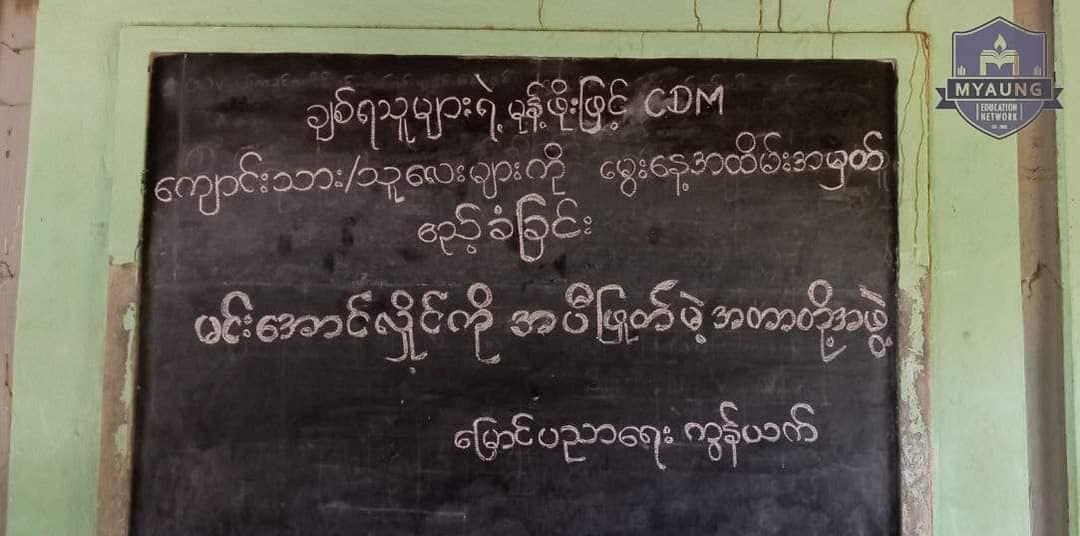 ချစ်ရသူများရဲ့ မုန့်ဖိုးဖြင့် CDM
ကျောင်းသား/သူလေးများကို မွေးနေ့အထိမ်းအမှတ်
ဧည့်ခံခြင်း
မင်းအောင်လှိုင်ကို အပီဖြုတ်မဲ့ အတာတို့အဖွဲ့
မြောင်ပညာရေး ကွန်ယက်
MYAUNG
EDUCATION
NETWORK